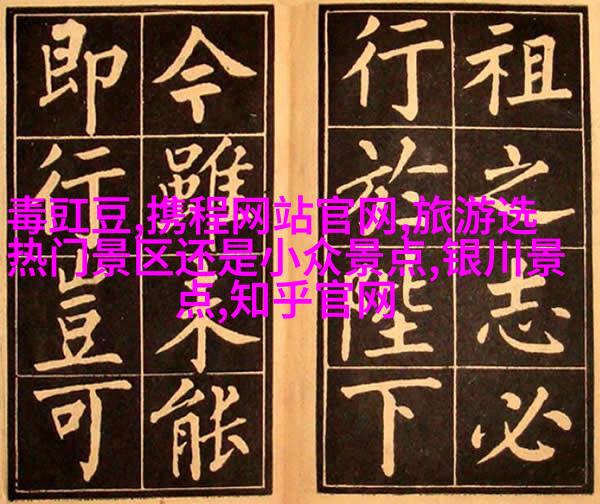 祖之志必
行於陛下
今雖未能
即行豈可
毒豇豆,携程网站官网,旅游选
热门景区还是小众景点,银川景
点,知乎官网